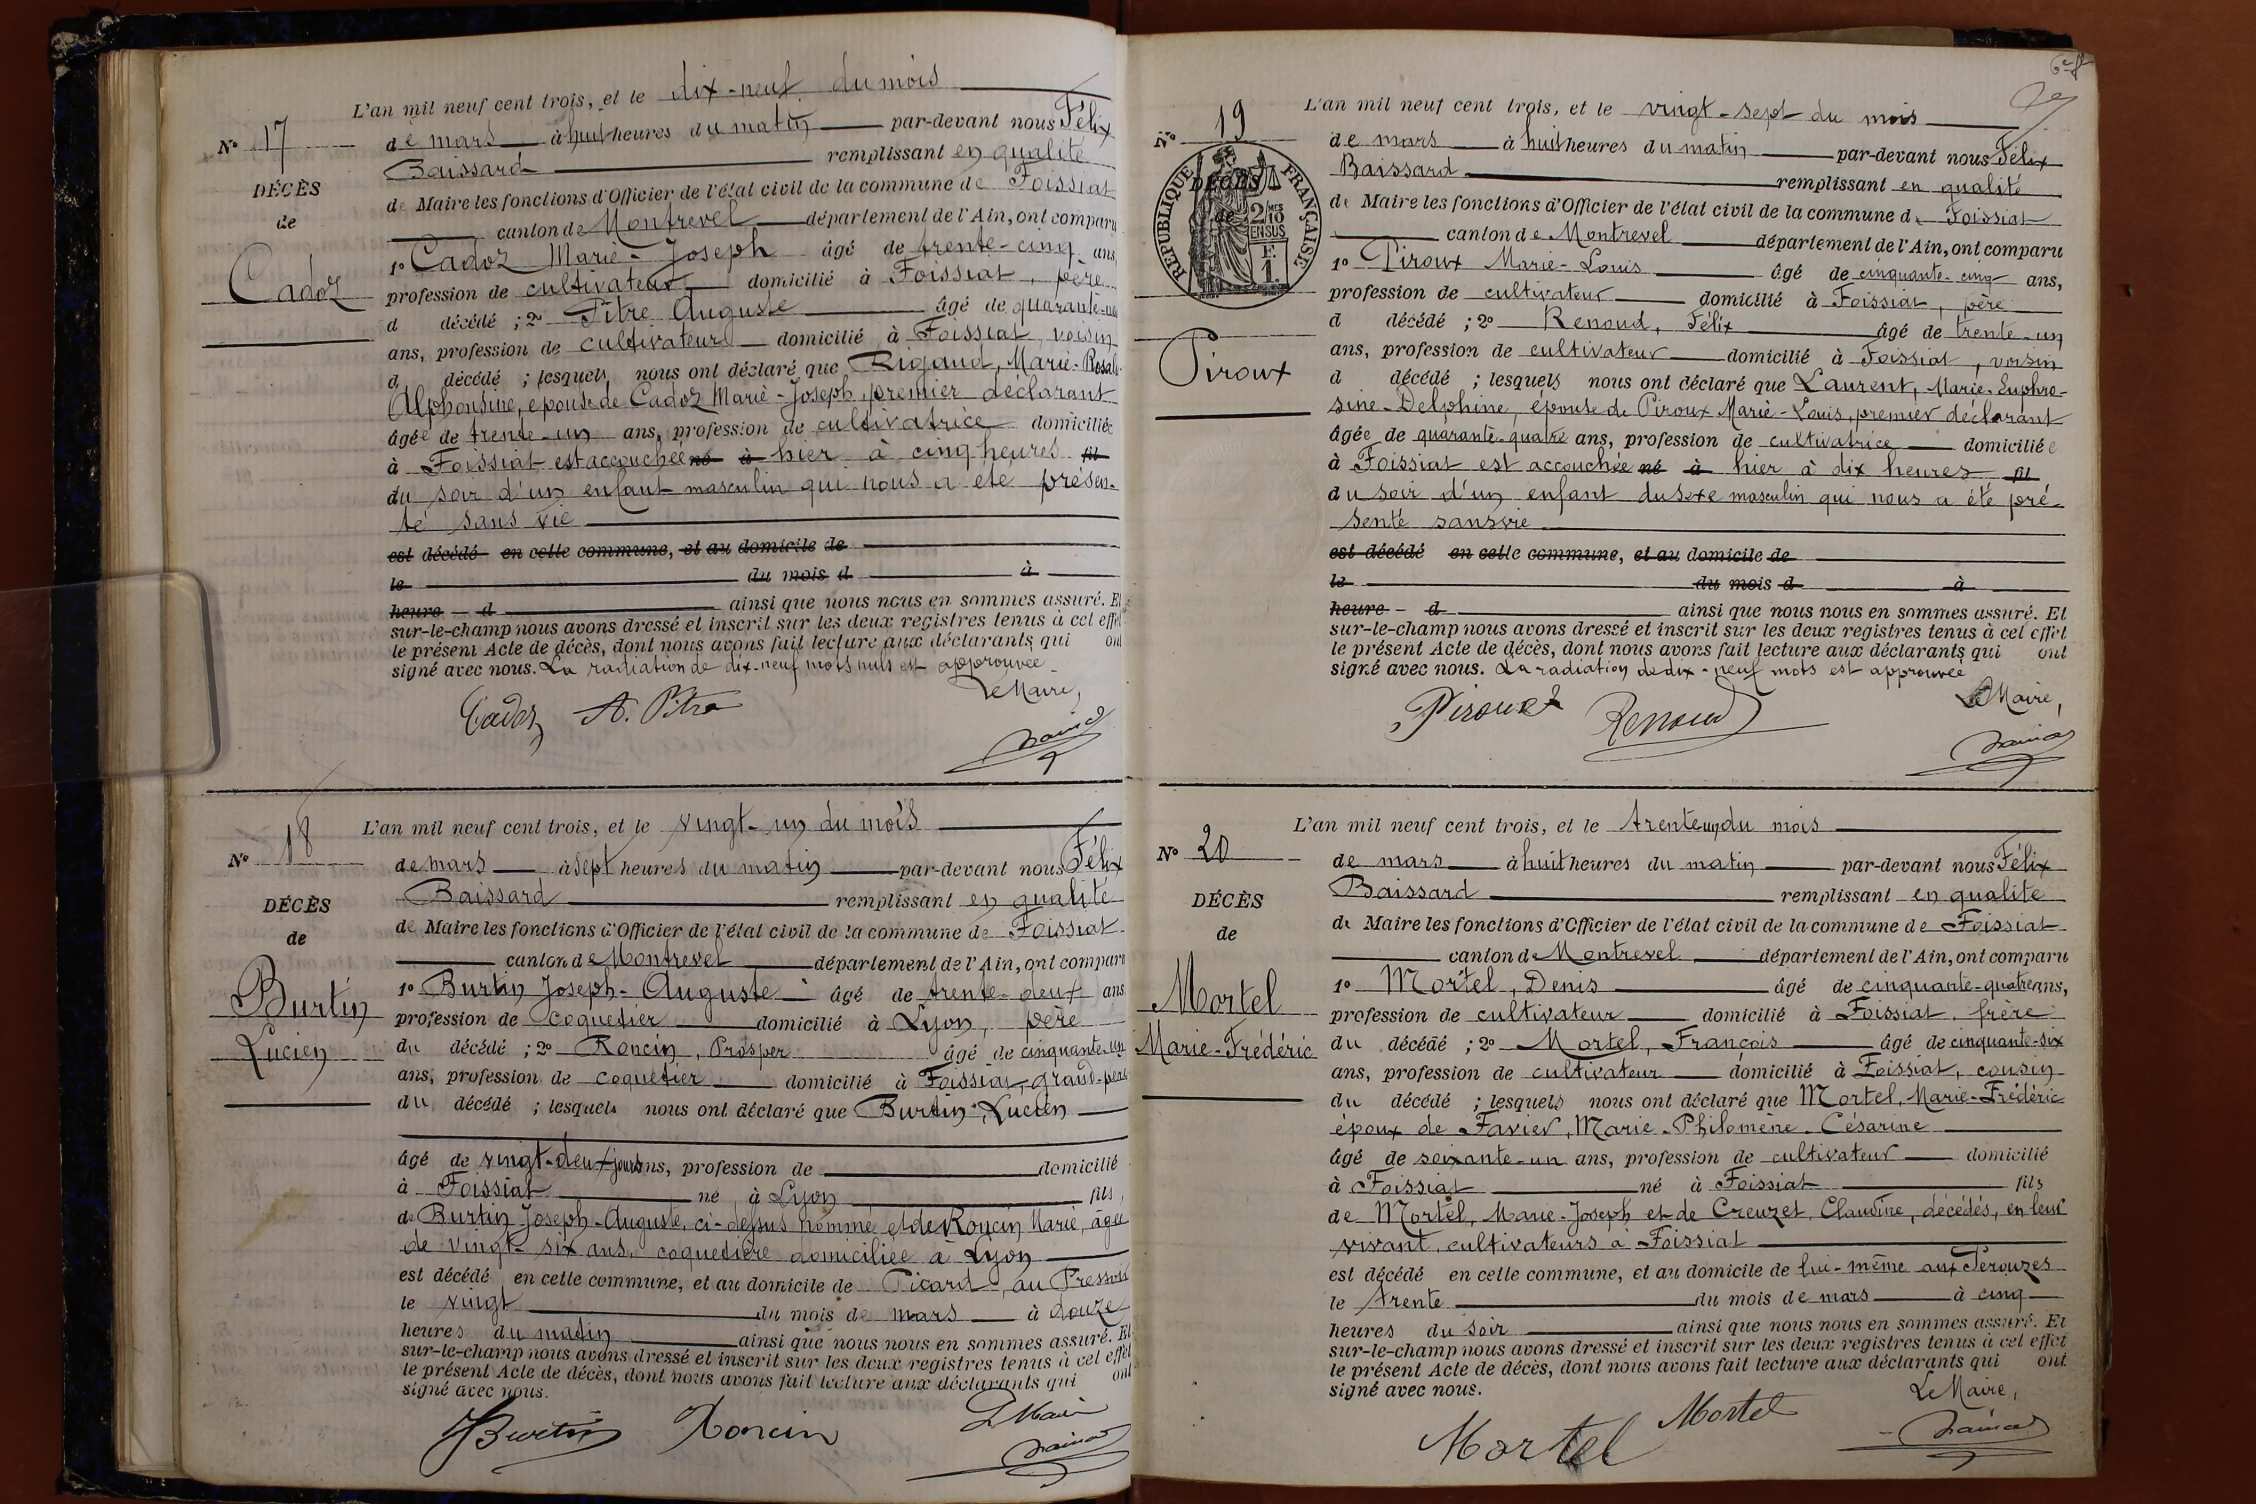 L'an mil neuf cent trois, et le dix-neuf du mois
N° 17
de mars à huit heures du matin par-devant nous Félix
Baissard remplissant en qualité
DÉCÈS
de
Cadoz
de Maire les fonctions d'Officier de l'état civil de la commune de Foissiat
canton de Montrevel département de l'Ain, ont comparu
1° Cadoz Marie-Joseph âgé de trente-cinq ans,
profession de cultivateur domicilié à Foissiat, père
d décédé ; 2° Pitre Auguste âgé de quarante-un
ans, profession de cultivateur domicilié à Foissiat, voisin
d décédé ; lesquels nous ont déclaré que Rigaud, Marie-Rosalie
Alphonsine, épouse de Cadoz Marie-Joseph, premier déclarant
âgée de trente-un ans, profession de cultivatrice domiciliée
à Foissiat est accouchée né à hier à cinq heures fil
du soir d'un enfant masculin qui nous a été présen-
té sans vie
est décédé en cette commune, et au domicile de
le du mois d à
heure d ainsi que nous nous en sommes assuré. Et
sur-le-champ nous avons dressé et inscrit sur les deux registres tenus à cet effet
le présent Acte de décès, dont nous avons fait lecture aux déclarants qui ont
signé avec nous. La radiation de dix-neuf mots nuls est approuvée
Le Maire,
Cadoz A. Pitre
L'an mil neuf cent trois, et le vingt-un du mois
N° 18
de mars à sept heures du matin par-devant nous Félix
Baissard remplissant en qualité
DÉCÈS
de
Burtin
Lucien
de Maire les fonctions d'Officier de l'état civil de la commune de Foissiat
canton de Montrevel département de l'Ain, ont comparu
1° Burtin Joseph-Auguste âgé de trente-deux ans
profession de coquetier domicilié à Lyon, père
du décédé ; 2° Roncin, Prosper âgé de cinquante-un
ans, profession de coquetier domicilié à Foissiat, grand-père
du décédé ; lesquels nous ont déclaré que Burtin, Lucien
âgé de vingt-deux jours ans, profession de domicilié
à Foissiat né à Lyon fils
de Burtin Joseph-Auguste, ci-dessus nommé et de Roncin Marie, âgée
de vingt-six ans, coquetière domiciliée à Lyon
est décédé en cette commune, et au domicile de Picard, au Pressoir
le vingt du mois de mars à douze
heures du matin ainsi que nous nous en sommes assuré. Et
sur-le-champ nous avons dressé et inscrit sur les deux registres tenus à cet effet
le présent Acte de décès, dont nous avons fait lecture aux déclarants qui ont
signé avec nous.
Burtin Roncin Le Maire
6e ft
L'an mil neuf cent trois, et le vingt-sept du mois
N° 19
de mars à huit heures du matin par-devant nous Félix
Baissard remplissant en qualité
RÉPUBLIQUE FRANÇAISE
2/10 MES EN SUS
F. 1
DÉCÈS
de
Piroux
de Maire les fonctions d'Officier de l'état civil de la commune de Foissiat
canton de Montrevel département de l'Ain, ont comparu
1° Piroux Marie-Louis âgé de cinquante-cinq ans,
profession de cultivateur domicilié à Foissiat, père
d décédé ; 2° Renoud, Félix âgé de trente-un
ans, profession de cultivateur domicilié à Foissiat, voisin
d décédé ; lesquels nous ont déclaré que Laurent, Marie-Euphro-
sine-Delphine, épouse de Piroux Marie-Louis, premier déclarant
âgée de quarante-quatre ans, profession de cultivatrice domiciliée
à Foissiat est accouchée né à hier à dix heures fil
du soir d'un enfant du sexe masculin qui nous a été pré-
senté sans vie
est décédé en cette commune, et au domicile de
le du mois d à
heure d ainsi que nous nous en sommes assuré. Et
sur-le-champ nous avons dressé et inscrit sur les deux registres tenus à cet effet
le présent Acte de décès, dont nous avons fait lecture aux déclarants qui ont
signé avec nous. La radiation de dix-neuf mots est approuvée
Le Maire,
Piroux Renoud
L'an mil neuf cent trois, et le trente un du mois
N° 20
de mars à huit heures du matin par-devant nous Félix
Baissard remplissant en qualité
DÉCÈS
de
Mortel
Marie-Frédéric
de Maire les fonctions d'Officier de l'état civil de la commune de Foissiat
canton de Montrevel département de l'Ain, ont comparu
1° Mortel, Denis âgé de cinquante-quatre ans,
profession de cultivateur domicilié à Foissiat, frère
du décédé ; 2° Mortel, François âgé de cinquante-six
ans, profession de cultivateur domicilié à Foissiat, cousin
du décédé ; lesquels nous ont déclaré que Mortel, Marie-Frédéric
époux de Favier, Marie-Philomène-Césarine
âgé de soixante-un ans, profession de cultivateur domicilié
à Foissiat né à Foissiat fils
de Mortel, Marie-Joseph et de Creuzet, Claudine, décédés, en leur
vivant, cultivateurs à Foissiat
est décédé en cette commune, et au domicile de lui-même aux Pérouzes
le trente du mois de mars à cinq
heures du soir ainsi que nous nous en sommes assuré. Et
sur-le-champ nous avons dressé et inscrit sur les deux registres tenus à cet effet
le présent Acte de décès, dont nous avons fait lecture aux déclarants qui ont
signé avec nous.
Le Maire,
Mortel Mortel